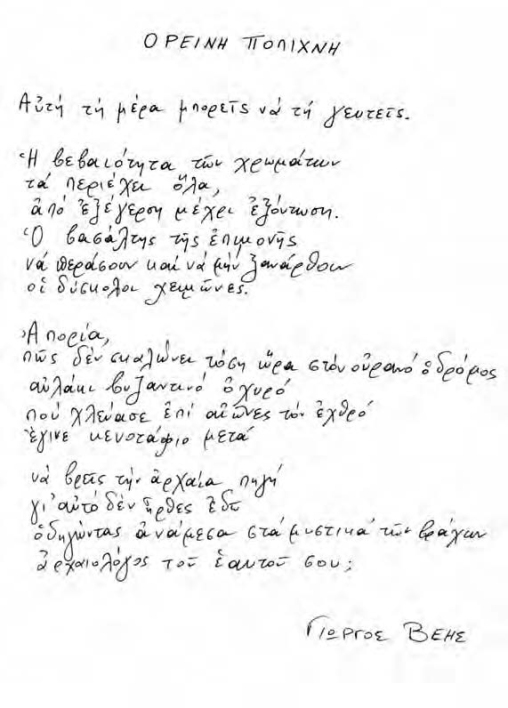 ΟΡΕΙΝΗ ΠΟΛΙΧΝΗ
Αὐτή τή μέρα μπορεῖς νά τή γευτεῖς.
Ἡ βεβαιότητα τῶν χρωμάτων
τά περιέχει ὅλα,
ἀπό ἐξέγερση μέχρι ἐξόντωση.
Ὁ βασάλτης τῆς ἐπιμονῆς
νά περάσουν καί νά μήν ξανάρθουν
οἱ δύσκολοι χειμῶνες.
Ἀπορία,
πῶς δέν σκαλώνει τόση ὥρα στόν οὐρανό ὁ δρόμος
αὐλάκι βυζαντινό ὀχυρό
πού χλεύασε ἐπί αἰῶνες τόν ἐχθρό
ἔγινε κενοτάφιο μετά
νά βρεῖς τήν ἀρχαία πηγή
γι' αὐτό δέν ἦρθες ἐδῶ
ὁδηγώντας ἀνάμεσα στά μυστικά τῶν βράχων
ἀρχαιολόγος τοῦ ἑαυτοῦ σου;
ΓΙΩΡΓΟΣ ΒΕΗΣ